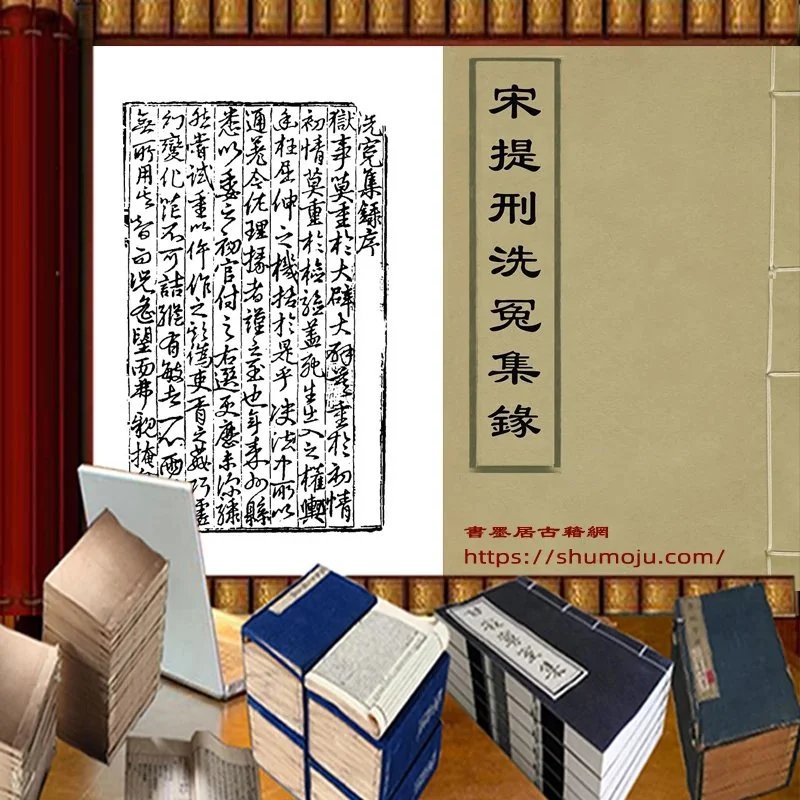 宋提刑洗冤集錄
洗冤集錄序
獄事莫重於大辟大辟莫重於初情
初情莫重於檢驗蓋死生出入之權輿
幽枉屈伸之機括於是乎決法中所以
通差令佐理掾者謹之至也年來州縣
悉以委之初官付之右選更歷未深驟
然嘗試重以仵作之欺偽吏胥之姦巧虛
幻變化茫不可詰縱有敏者一心兩
無所用其智而況遙望而弗親掩
書墨居古籍網
https://shumoju.com/